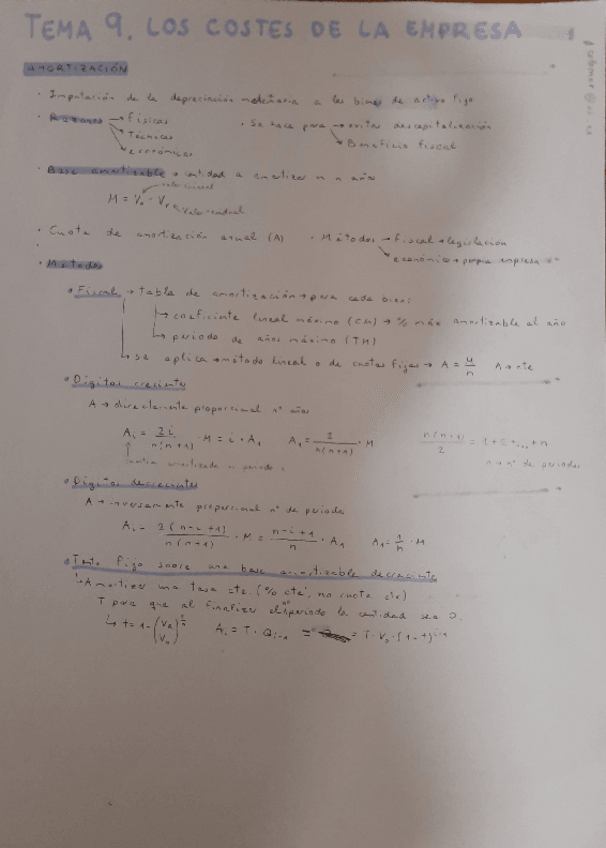 TEMA 9. LOS COSTES DE LA EMPRESA
AMORTIZACIÓN
· Imputación de la depreciación a los bienes de activo fijo
· Razones → Físicas
→ Técnicas
→ económicas
· Se hace para → evitar descapitalización
→ Beneficio fiscal
· Base amortizable → cantidad a amortizar en n años
M = V₀ - Vᵣ
valor residual
· Cuota de amortización anual (A)
· Métodos → fiscal → legislación
→ económico → propia empresa
· Métodos
· Fiscal → tabla de amortización → para cada bien:
→ coeficiente lineal máximo (CM) → % máx amortizable al año
→ periodo de años máximo (TM)
→ se aplica → método lineal o de cuotas fijas → A = M/n A → cte
· Dígitos creciente
A → directamente proporcional nº años
Aᵢ = 2i/n(n+1) · M = i · A₁ A₁ = 2/n(n+1) · M
n(n+1)/2 = 1+2+...+n
n → nº de periodos
· Dígitos decreciente
A → inversamente proporcional nº de periodo
Aᵢ = 2(n-i+1)/n(n+1) · M = n-i+1/n · A₁ A₁ = 1/n · M
· Tanto fijo sobre una base amortizable decreciente
↳ Amortizar una tasa cte. (% cte, no cuota cte)
T para que al finalizar el nº periodo la cantidad sea 0.
Aᵢ = T · Qᵢ₋₁ = T · V₀ · (1-t)ⁱ⁻¹